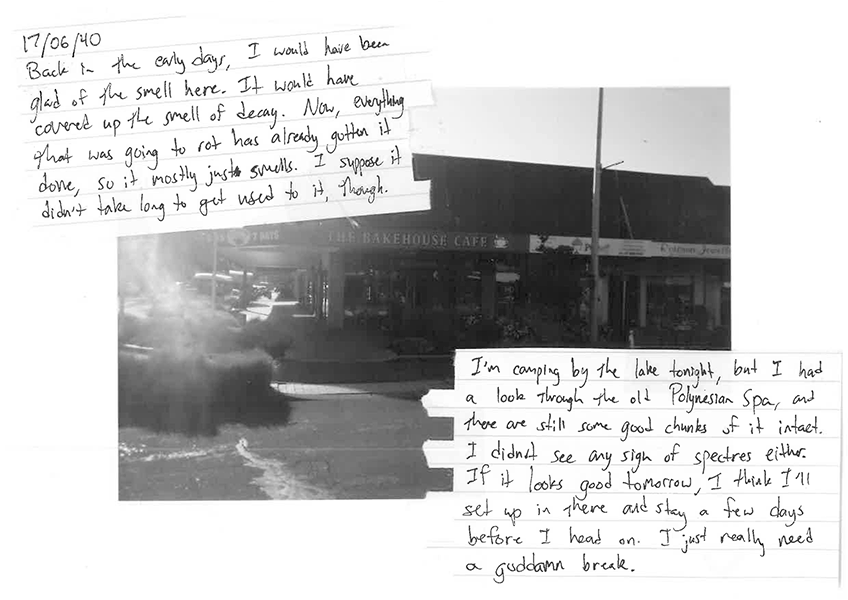 17/06/40
Back in the early days, I would have been
glad of the smell here. It would have
covered up the smell of decay. Now, everything
that was going to rot has already gotten it
done, so it mostly just smells. I suppose it
didn't take long to get used to it, though.
7 DAYS
THE BAKEHOUSE CAFE
I'm camping by the lake tonight, but I had
a look through the old Polynesian Spa, and
there are still some good chunks of it intact.
I didn't see any sign of spectres either.
If it looks good tomorrow, I think I'll
set up in there and stay a few days
before I head on. I just really need
a goddamn break.